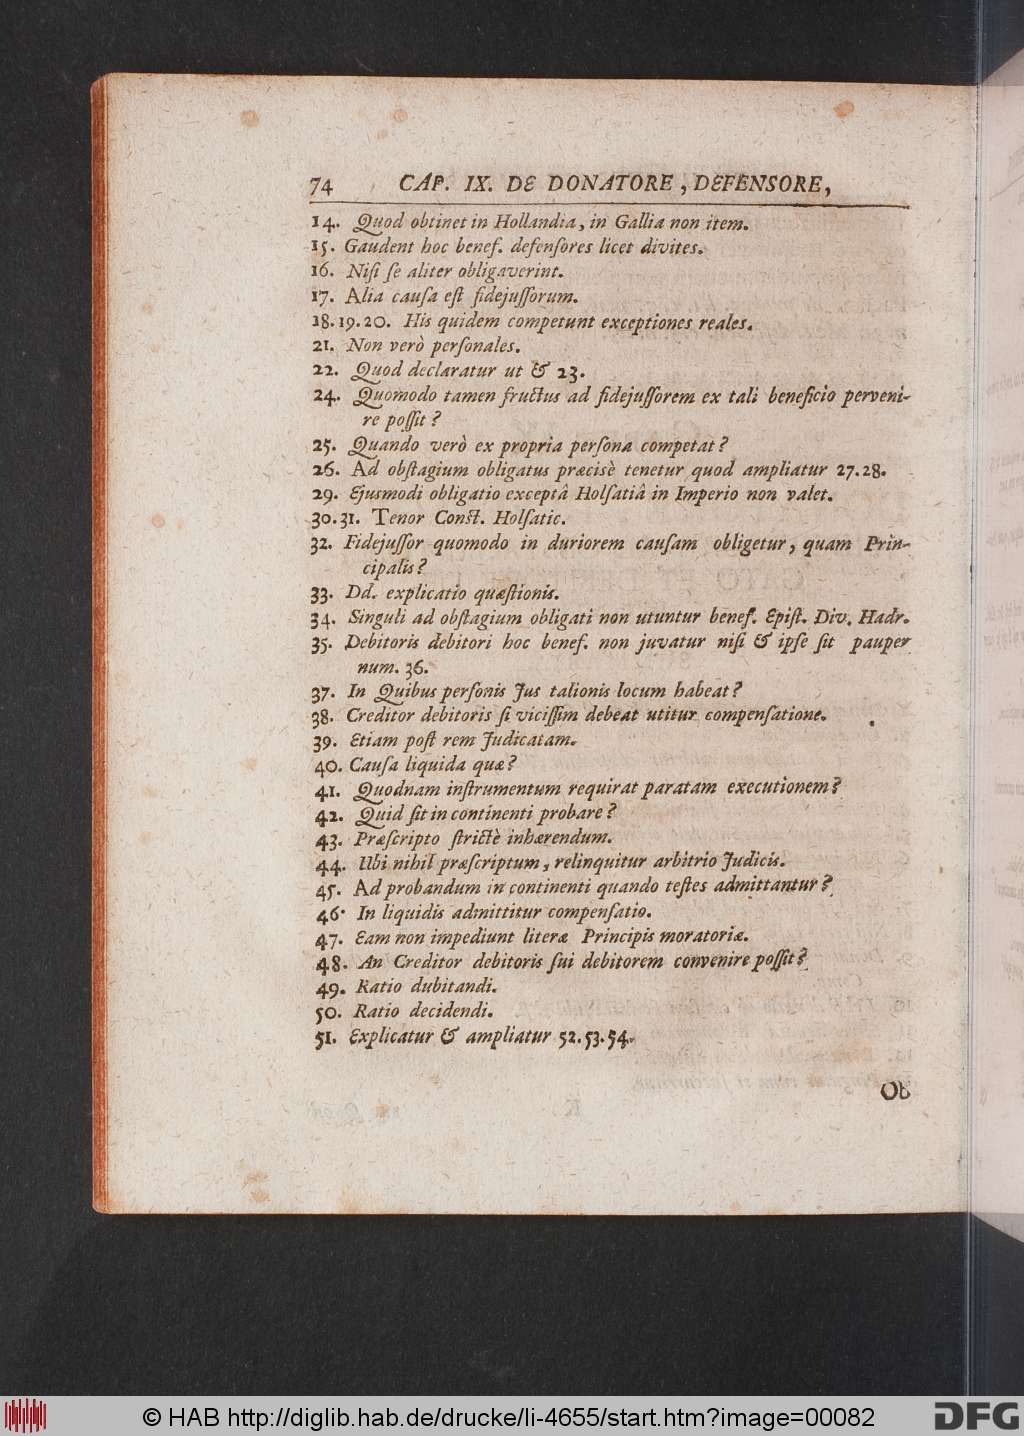 74 CAP. IX. DE DONATORE, DEFENSORE,
14. Quod obtinet in Hollandia, in Gallia non item.
15. Gaudent hoc benef. defenſores licet divites.
16. Niſi ſe aliter obligaverint.
17. Alia cauſa eſt fidejuſſorum.
18. 19. 20. His quidem competunt exceptiones reales.
21. Non verò perſonales.
22. Quod declaratur ut & 23.
24. Quomodo tamen fructus ad fidejuſſorem ex tali beneficio perveni-
re poſſit?
25. Quando verò ex propria perſona competat?
26. Ad obſtagium obligatus præcisè tenetur quod ampliatur 27. 28.
29. Ejusmodi obligatio exceptâ Holſatiâ in Imperio non valet.
30. 31. Tenor Conſt. Holſatic.
32. Fidejuſſor quomodo in duriorem cauſam obligetur, quam Prin-
cipalis?
33. Dd. explicatio quæſtionis.
34. Singuli ad obſtagium obligati non utuntur benef. Epiſt. Div. Hadr.
35. Debitoris debitori hoc benef. non juvatur niſi & ipſe ſit pauper
num. 36.
37. In Quibus perſonis Jus talionis locum habeat?
38. Creditor debitoris ſi viciſſim debeat utitur compenſatione.
39. Etiam poſt rem Judicatam.
40. Cauſa liquida quæ?
41. Quodnam inſtrumentum requirat paratam executionem?
42. Quid ſit in continenti probare?
43. Præſcripto ſtrictè inhærendum.
44. Ubi nihil præſcriptum, relinquitur arbitrio Judicis.
45. Ad probandum in continenti quando teſtes admittantur?
46. In liquidis admittitur compenſatio.
47. Eam non impediunt literæ Principis moratoriæ.
48. An Creditor debitoris ſui debitorem convenire poſſit?
49. Ratio dubitandi.
50. Ratio decidendi.
51. Explicatur & ampliatur 52. 53. 54.
Ob
© HAB http://diglib.hab.de/drucke/li-4655/start.htm?image=00082
DFG